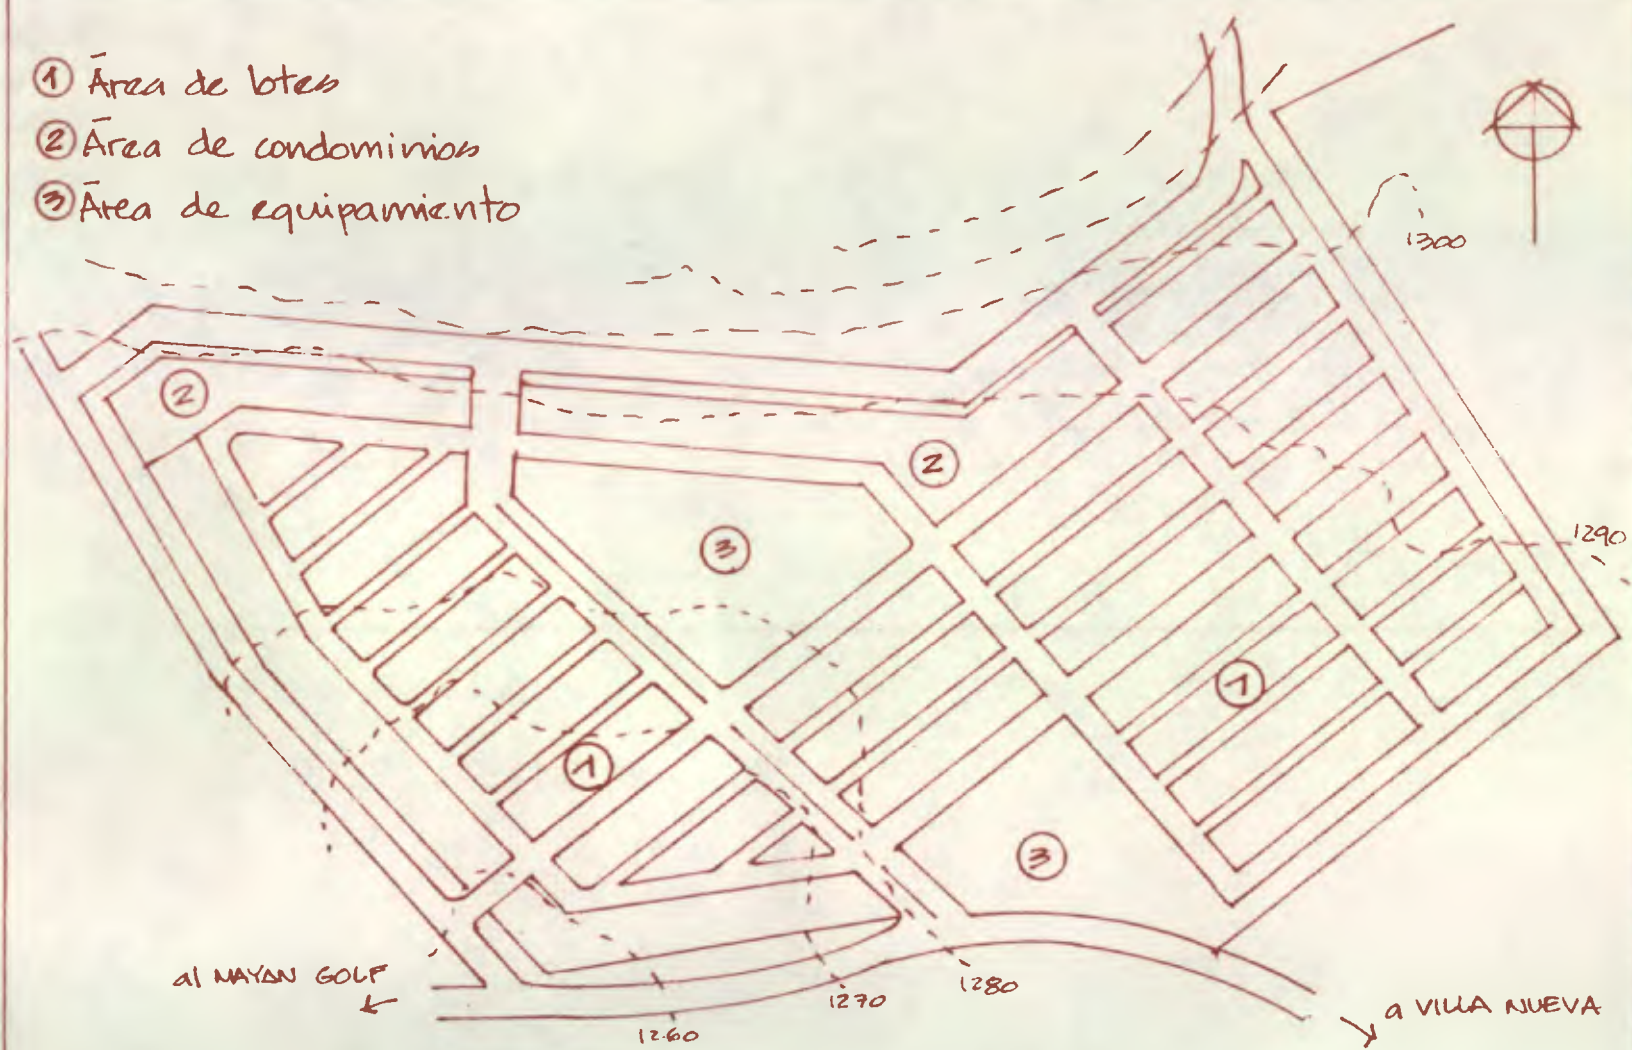 ① Área de lotes
② Área de condominios
③ Área de equipamiento
1300
②
②
1290
③
①
①
③
al MAYAN GOLF
←
1270
1280
1260
a VILLA NUEVA